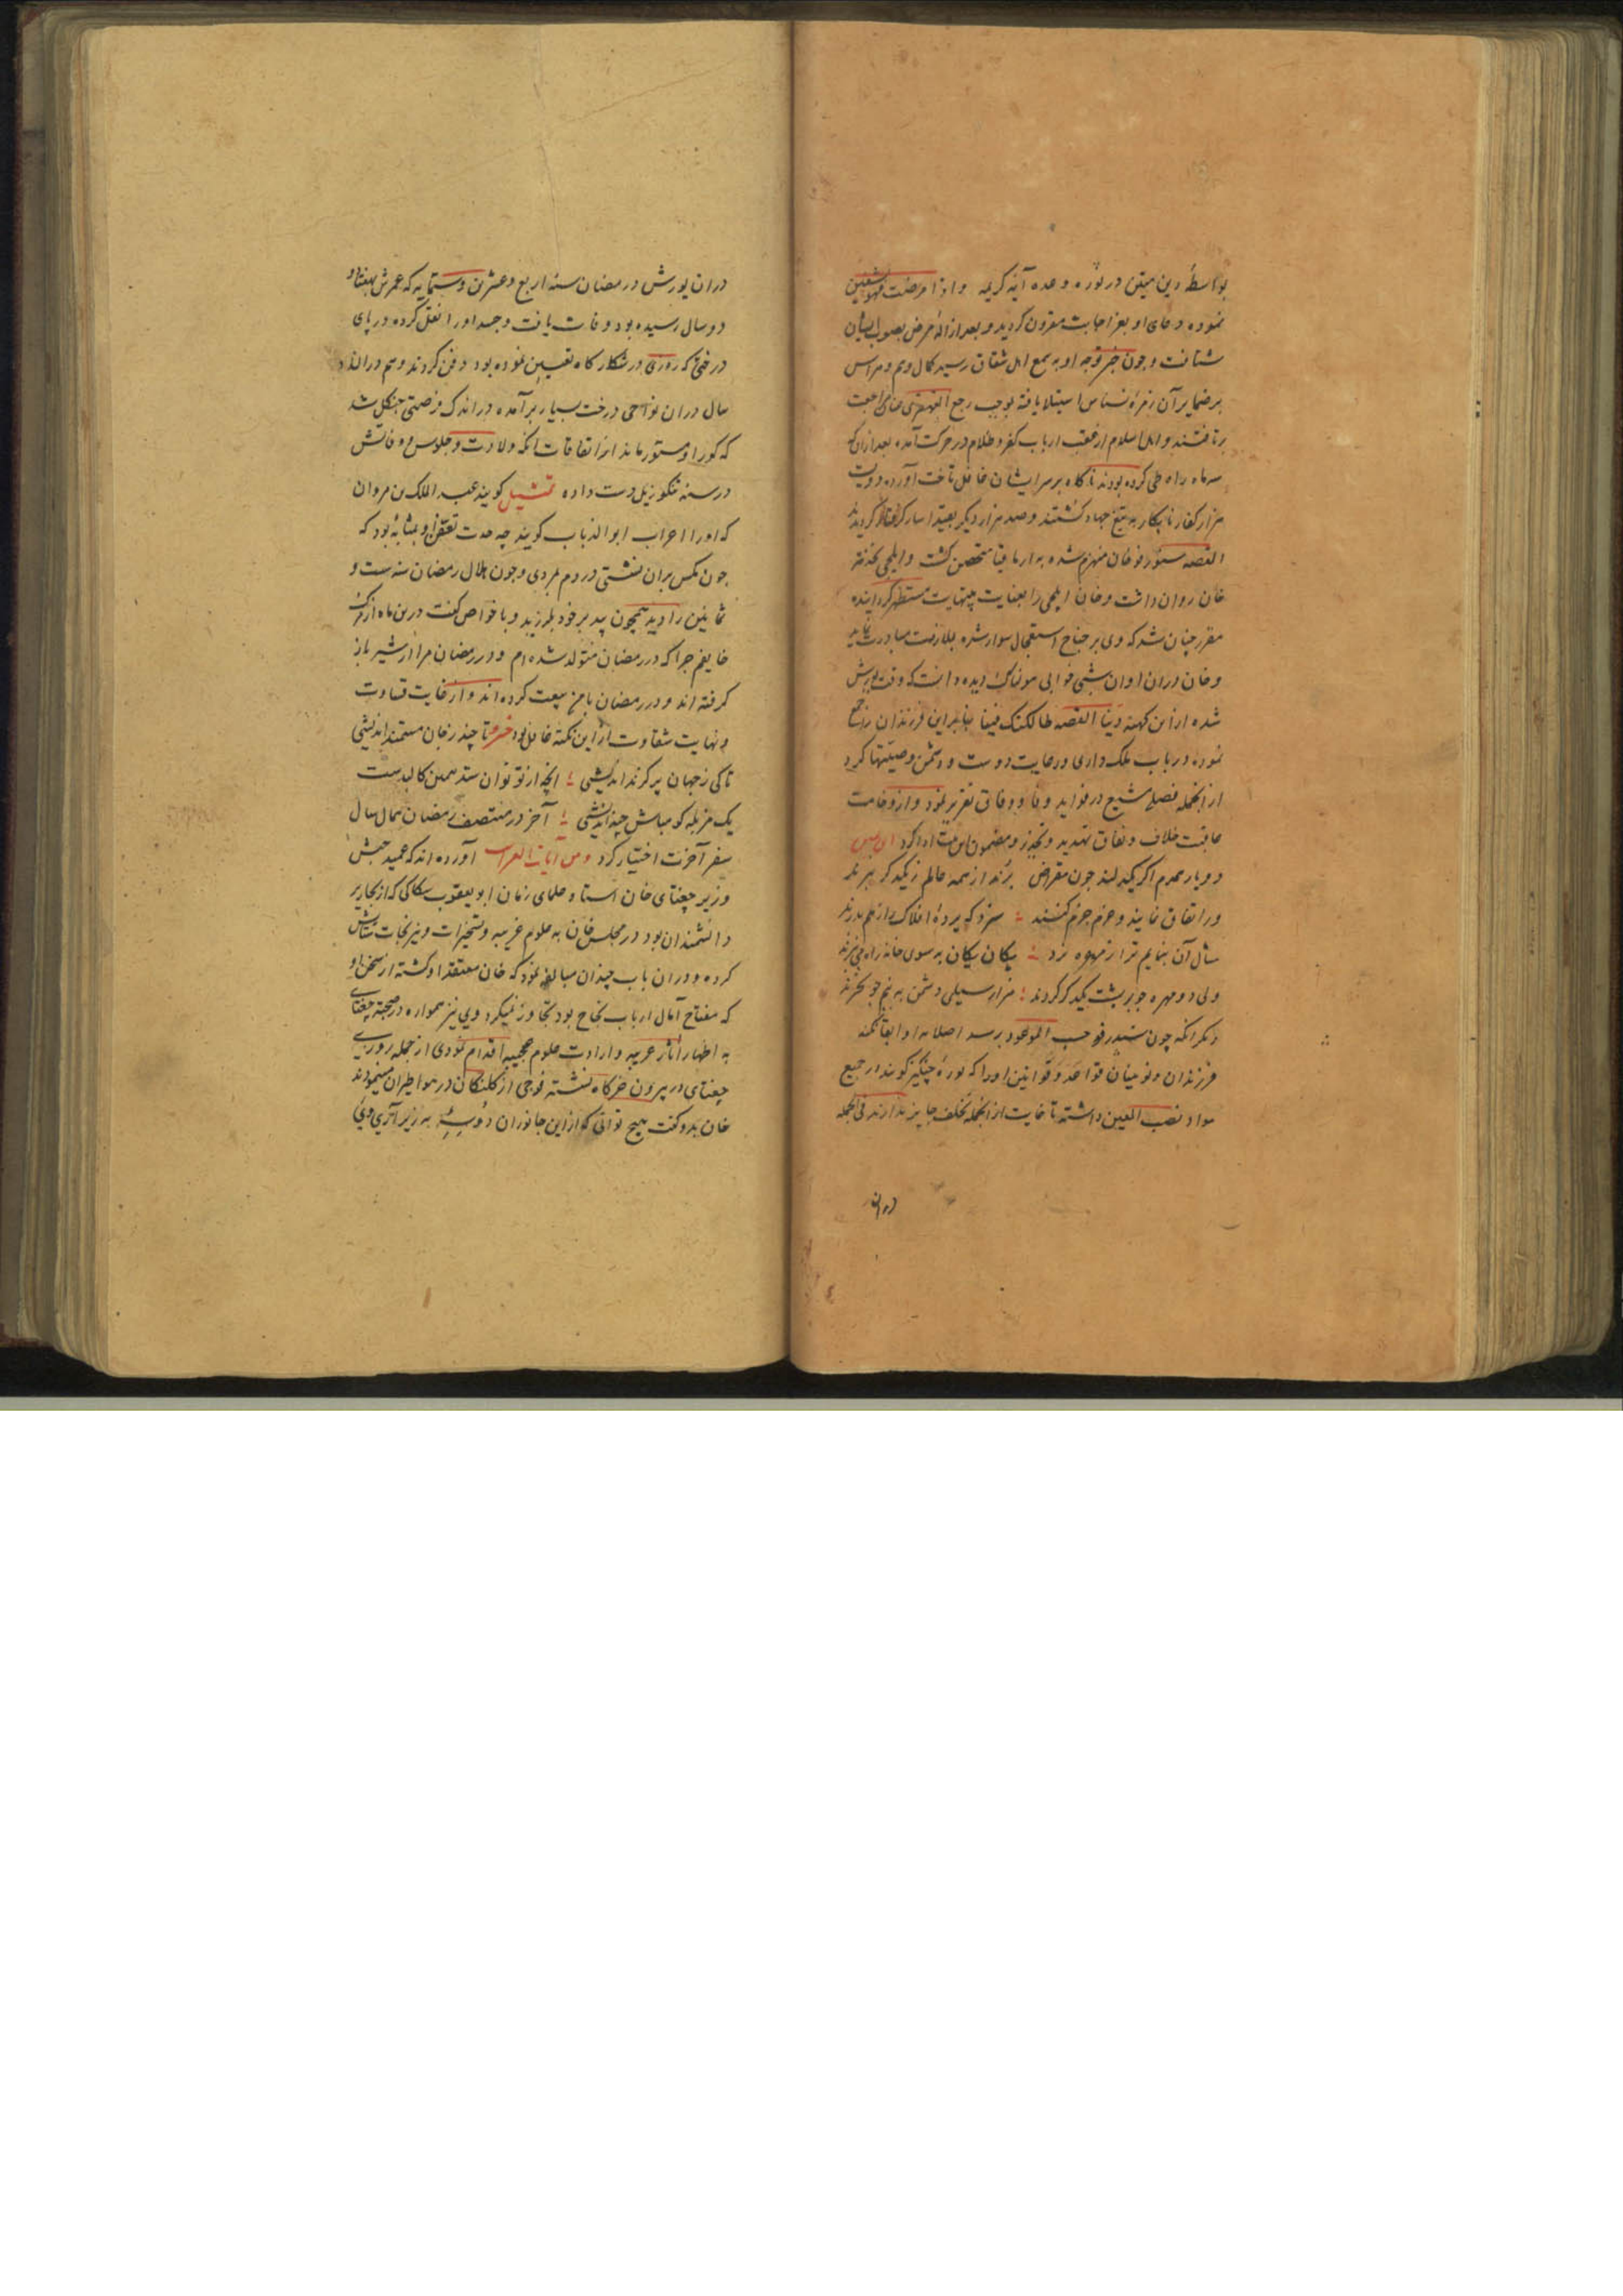 بواسطهٔ دین متین در نوره وعده آیه کریمه واذا مرضت فهو یشفین
نموده دعای او بعز اجابت مقرون گردید و بعد از ازالهٔ مرض بصوب ایشان
شتافت و چون خبر توجه او به سمع اهل شقاق رسید کمال وهم و هراس
بر ضمایر آن زمرهٔ نسناس استیلا یافته بموجب رجع القهقری عنان مراجعت
برتافتند و اهل اسلام از عقب ارباب کفر و ظلام در حرکت آمده بعد از آن که
سه ماه راه طی کرده بودند ناکاه بر سر ایشان غافل تاخت آورده دویست
هزار کفار نابکار به تیغ جهاد کشتند و صد هزار دیکر بقید اسار گرفتار گردیدند
القصه شیدرقو خان منهزم شده به ارماقیا متحصن کشت و ایلچی نخدمت
خان روان داشت و خان ایلچی را بعنایت بینهایت مستظهر کردانیده
مقرر چنان شد که وی بر جناح استعجال سوار شده بملازمت مبادرت نماید
و خان دران اوان شبی خوابی هولناک دیده دانست که وقت یورش
شده ازین کهنه دنیا القصه بنابراین فرزندان را جمع
نموده در باب ملک داری و رعایت دوست و دشمن وصیتها کرد
از انجمله فصلی مشبع در فواید وفا و وفاق تقریر نمود و از وخامت
عاقبت خلاف و نفاق تهدید و تحذیر و مضمون این ادا کرد
دو یار همدم اگر یکدلند چون مقراض برند از همه عالم ز یکدگر نبرند
ور اتفاق نمایند و عزم جزم کنند سزد که پردهٔ افلاک را ز هم بدرند
مثال آن بنمایم ترا ز مهره نرد یکان یکان به سوی خانه راه می نبرند
ولی دو مهره چو بر پشت یکدگر کردند هزار سیلی دشمن به نیم جو نخرند
دیکر انکه چون شیدرقو حسب الموعود برسد اصلا به او ابقا نکند
فرزندان و نوینیان قواعد و قوانین او را که تورهٔ چنگیز گویند در جمیع
مواد نصب العین داشته تا غایت از انجمله تخلف جایز ندارند فی الجمله
دران
دران یورش در رمضان سنه اربع و عشرین و ستمایه که عمرش بهفتاد و
دو سال رسیده بود وفات یافت و جسد او را نقل کرده در پای
درختی که روزی در شکارگاه تعیین نموده بود دفن کردند و هم در اندک
سال دران نواحی درخت بسیار برآمده در اندک فرصتی جنکل شد
که گور او مستور ماند از اتفاقات انکه ولادت و جلوس و وفاتش
در سنه تنکوزئیل دست داده تمثیل گویند عبد الملک بن مروان
که او را اعراب ابو الذباب گویند چه حدت تعفن او بمثابهٔ بود که
چون مکس بران نشستی در دم بمردی و چون هلال رمضان سنه ست و
ثمانین را دید همچون بید بر خود بلرزید و با خواص گفت درین ماه از مرک
خایفم چرا که در رمضان متولد شده ام و در رمضان مرا از شیر باز
گرفته اند و در رمضان با من بیعت کرده اند و از غایت قساوت
و نهایت شقاوت ازین نکته غافل بود تا چند ز جان مستمند اندیشی
تا کی ز جهان پر گزند اندیشی انچه از تو توان ستد همین کالبدست
یک مزبله گو مباش چند اندیشی آخر در منتصف رمضان همان سال
سفر آخرت اختیار کرد و من آورده اند که عمید حبش
وزیر چغتای خان استاد علمای زمان ابو یعقوب سکاکی که از نحاریر
دانشمندان بود در مجلس خان به علوم غریبه و تسخیرات و نیرنجات ستایش
کرده و دران باب چندان مبالغه نمود که خان معتقد او گشته از سخن او
که مفتاح آمال ارباب نجاح بود تجاوز نمیکرد و وی نیز همواره در صحبت چغتای
به اظهار آثار غریبه و ارادت علوم عجیبه اقدام نمودی از جمله روزی
چغتای در بیرون خرگاه نشسته فوجی از کلنگان در هوا طیران مینمودند
خان بدو گفت هیچ توانی که از این جانوران دو سهٔ به زیر آری وی